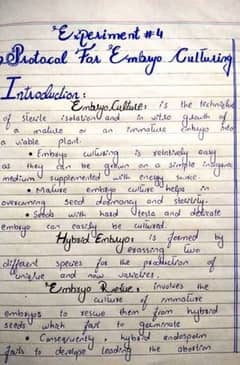 "Experiment #4
Protocol For "Embryo Culturing
Introduction:
Embryo Culture: is the technique
of sterile isolation and in vitro growth of
a mature or an immature embryo into
a viable plant.
• Embryo culturing is relatively easy
as they can be grown on a simple inorganic
medium supplemented with energy source.
• Mature embryo culture helps in
overcoming seed dormancy and sterility.
• Seeds with hard testa and delicate
embryo can easily be cultured.
Hybrid Embryo: is formed by
crossing two
different species for the production of
unique and new varieties.
"Embryo Rescue: involves the
culture of immature
embryos to rescue them from hybrid
seeds which fast to germinate
• Consequently, hybrid endosperm
fails to develope leading the abortion